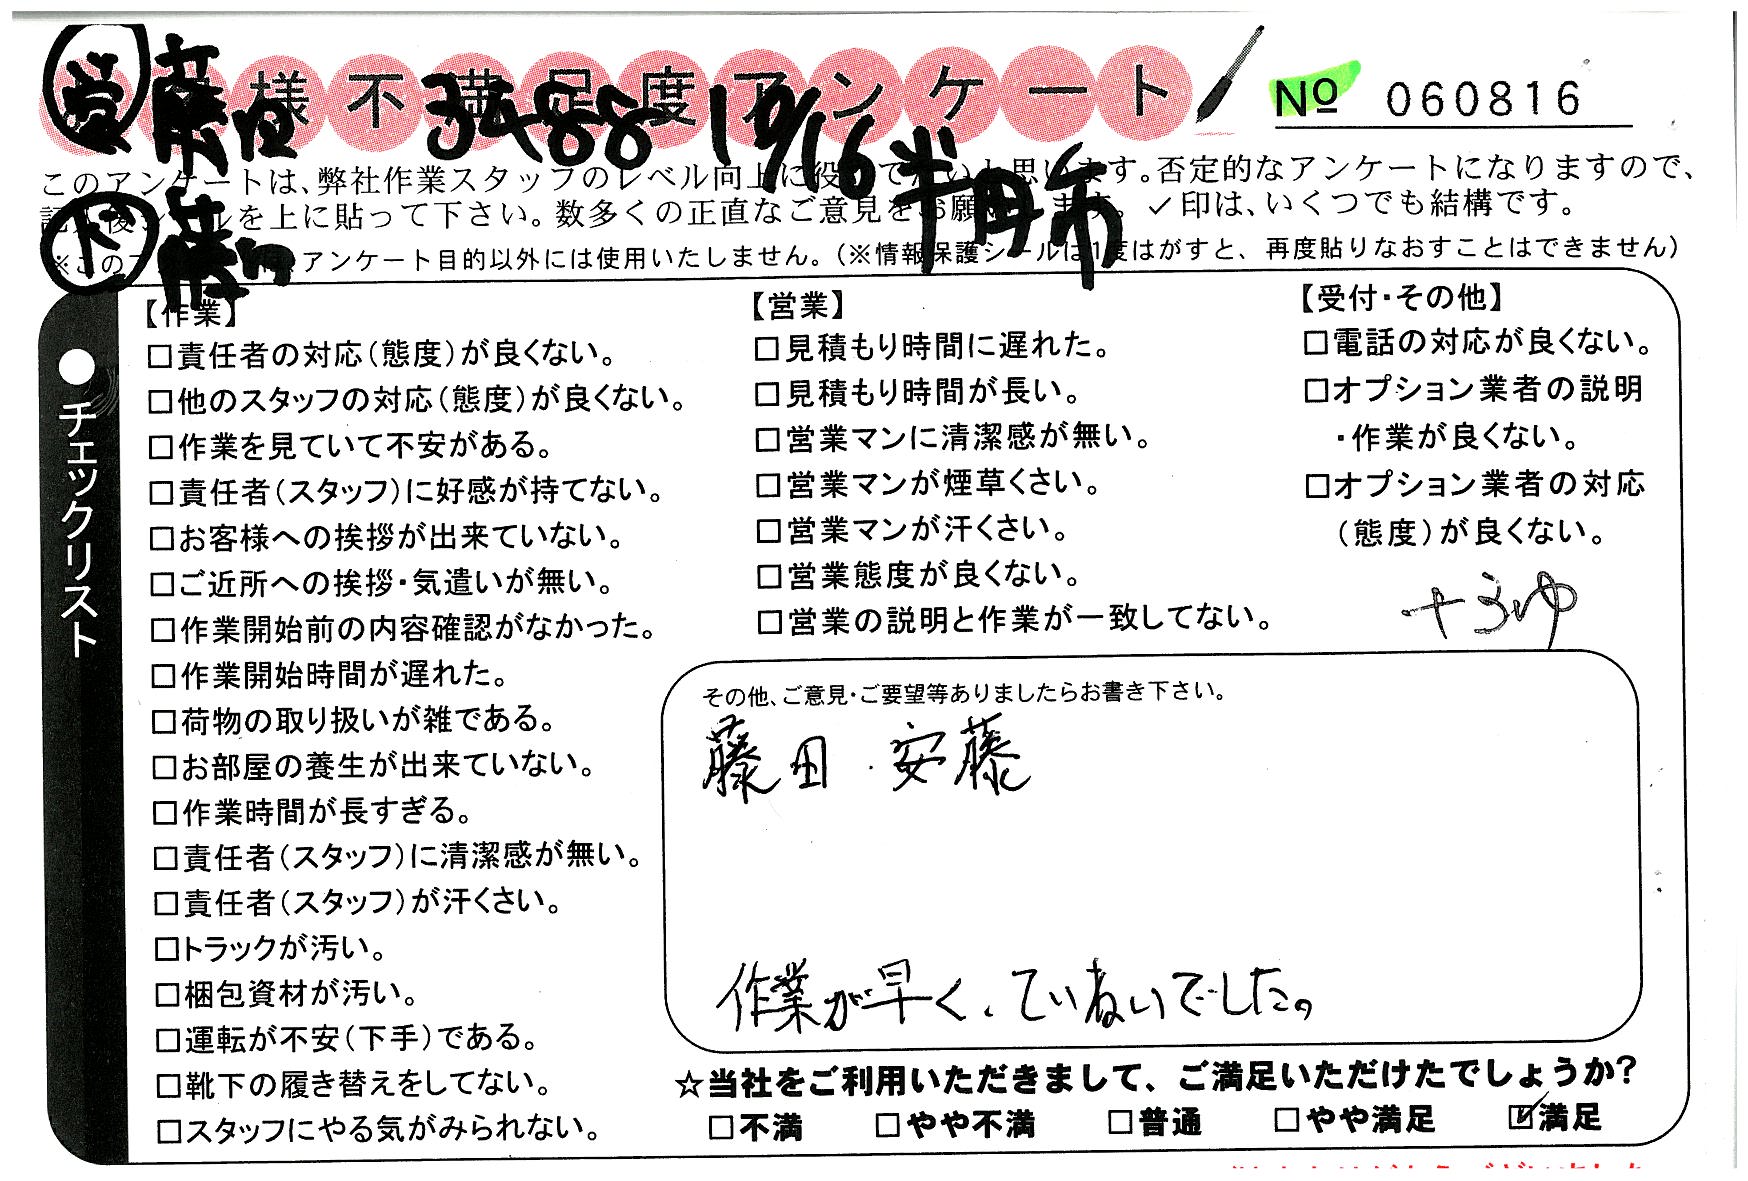 様不満足度アンケート No 060816
3488 10/16 半田市
このアンケートは、弊社作業スタッフのレベル向上に役 思います。否定的なアンケートになりますので、
ルを上に貼って下さい。数多くの正直なご意見をお願 します。✓印は、いくつでも結構です。
※この アンケート目的以外には使用いたしません。(※情報保護シールは1度はがすと、再度貼りなおすことはできません)
●チェックリスト
【作業】
□責任者の対応(態度)が良くない。
□他のスタッフの対応(態度)が良くない。
□作業を見ていて不安がある。
□責任者(スタッフ)に好感が持てない。
□お客様への挨拶が出来ていない。
□ご近所への挨拶・気遣いが無い。
□作業開始前の内容確認がなかった。
□作業開始時間が遅れた。
□荷物の取り扱いが雑である。
□お部屋の養生が出来ていない。
□作業時間が長すぎる。
□責任者(スタッフ)に清潔感が無い。
□責任者(スタッフ)が汗くさい。
□トラックが汚い。
□梱包資材が汚い。
□運転が不安(下手)である。
□靴下の履き替えをしてない。
□スタッフにやる気がみられない。
【営業】
□見積もり時間に遅れた。
□見積もり時間が長い。
□営業マンに清潔感が無い。
□営業マンが煙草くさい。
□営業マンが汗くさい。
□営業態度が良くない。
□営業の説明と作業が一致してない。
【受付・その他】
□電話の対応が良くない。
□オプション業者の説明
・作業が良くない。
□オプション業者の対応
(態度)が良くない。
その他、ご意見・ご要望等ありましたらお書き下さい。
藤田・安藤
作業が早く、ていねいでした。
☆当社をご利用いただきまして、ご満足いただけたでしょうか?
□不満 □やや不満 □普通 □やや満足 ☑満足